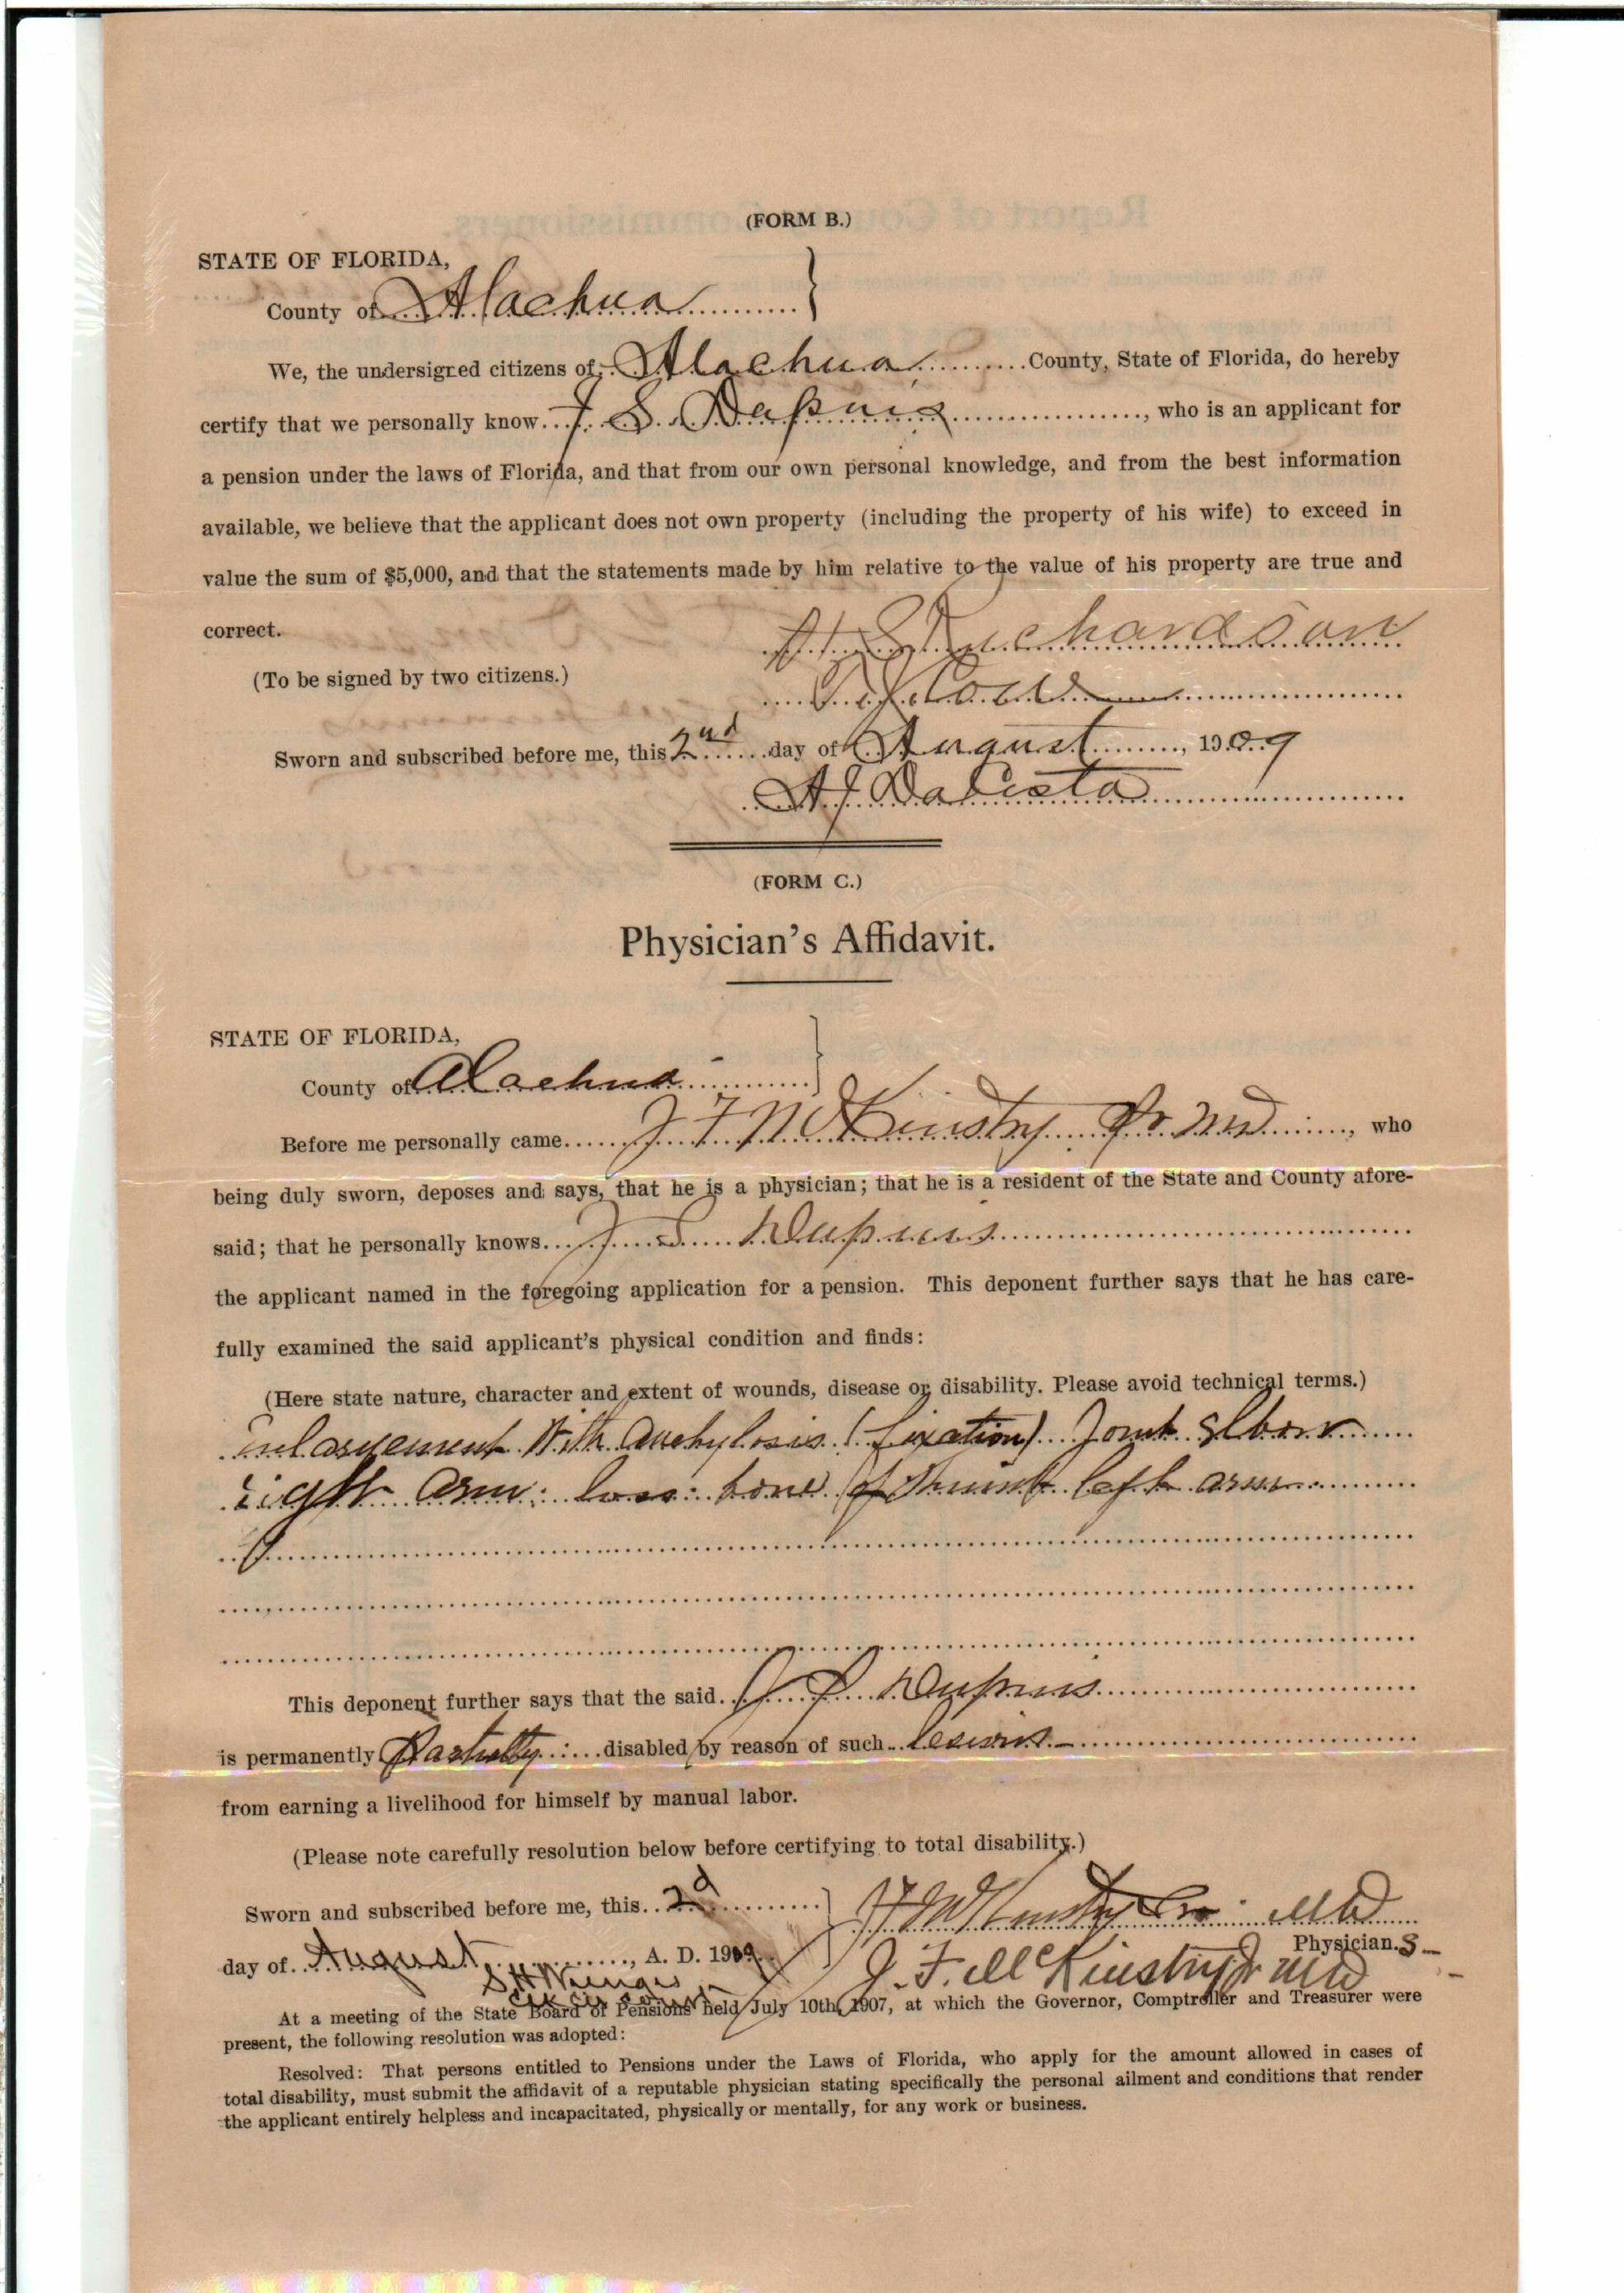 (FORM B.)
STATE OF FLORIDA,
County of Alachua
We, the undersigned citizens of Alachua County, State of Florida, do hereby
certify that we personally know J. S. Dupuis, who is an applicant for
a pension under the laws of Florida, and that from our own personal knowledge, and from the best information
available, we believe that the applicant does not own property (including the property of his wife) to exceed in
value the sum of $5,000, and that the statements made by him relative to the value of his property are true and
correct.
H S Richardson
(To be signed by two citizens.)
Sworn and subscribed before me, this 2nd day of August, 1909
A J DaCosta
(FORM C.)
Physician's Affidavit.
STATE OF FLORIDA,
County of Alachua
Before me personally came J F McKinstry Jr MD, who
being duly sworn, deposes and says, that he is a physician; that he is a resident of the State and County afore-
said; that he personally knows J S Dupuis
the applicant named in the foregoing application for a pension. This deponent further says that he has care-
fully examined the said applicant's physical condition and finds:
(Here state nature, character and extent of wounds, disease or disability. Please avoid technical terms.)
Enlargement With Anchylosis (fixation) Joint Elbow
right arm: loss: bone of left arm
This deponent further says that the said J S Dupuis
is permanently Partially disabled by reason of such lesions
from earning a livelihood for himself by manual labor.
(Please note carefully resolution below before certifying to total disability.)
Sworn and subscribed before me, this 2d
J F McKinstry Sr MD
Physician.s
day of August, A. D. 1909
J. F. McKinstry Jr MD
S H Wienges
Clk Cir Court
At a meeting of the State Board of Pensions held July 10th, 1907, at which the Governor, Comptroller and Treasurer were
present, the following resolution was adopted:
Resolved: That persons entitled to Pensions under the Laws of Florida, who apply for the amount allowed in cases of
total disability, must submit the affidavit of a reputable physician stating specifically the personal ailment and conditions that render
the applicant entirely helpless and incapacitated, physically or mentally, for any work or business.